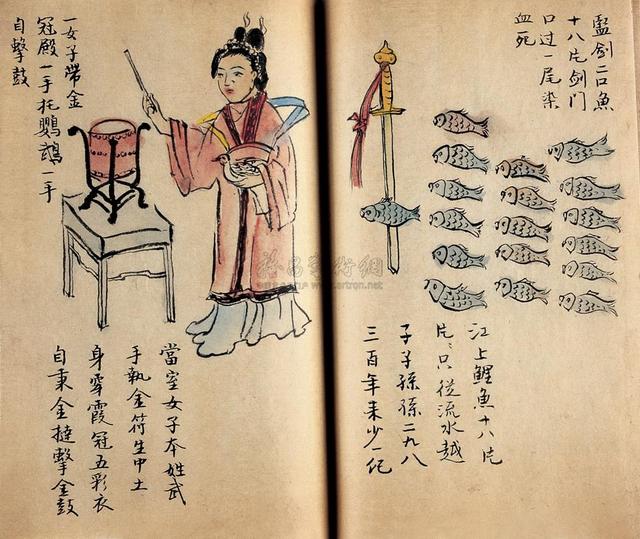 監劍二口魚
十八片剑门
口过一尾染
血死
江上鯉魚十八片
片〻只從流水越
子子孫孫二九八
三百年来少一纪
一女子帶金
冠殿一手托鸚鵡一手
自擊鼓
當室女子本姓武
手執金符生中土
身穿霞冠五彩衣
自秉金撾擊金鼓
雅昌藝術網
www.artron.net